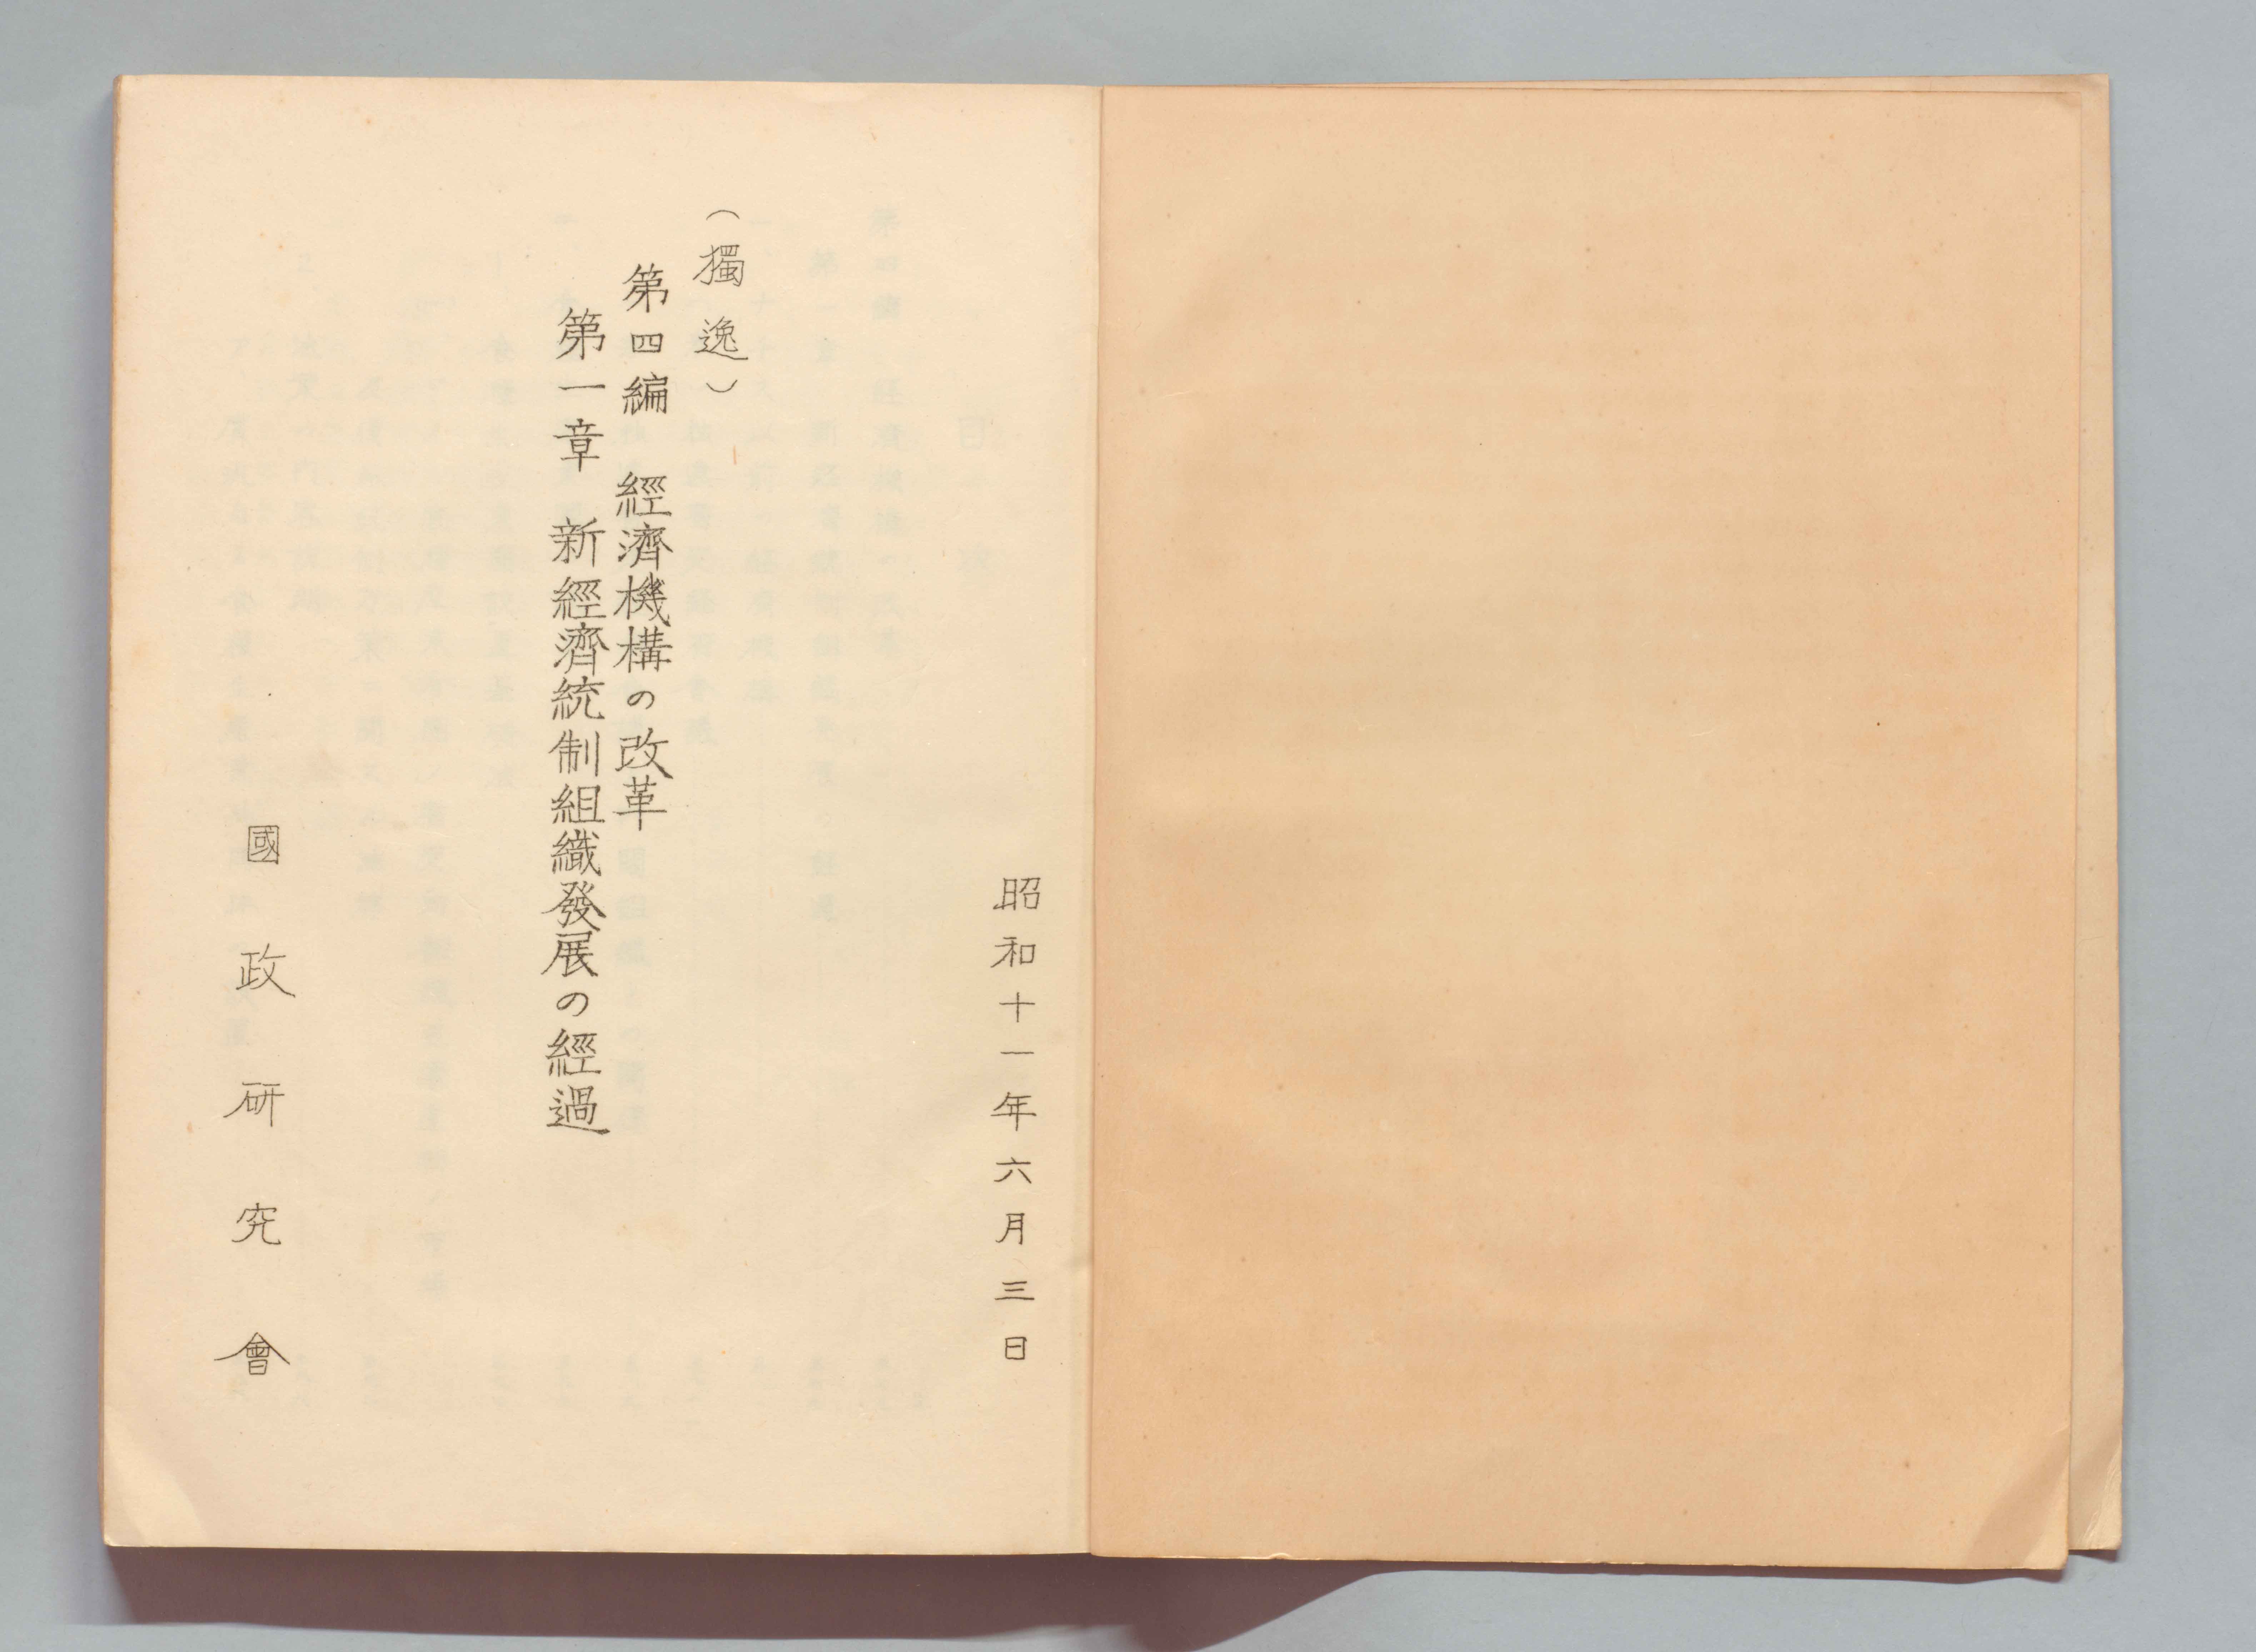 昭和十一年六月三日
(獨逸)
第四編 經濟機構の改革
第一章 新經濟統制組織發展の經過
國政研究會